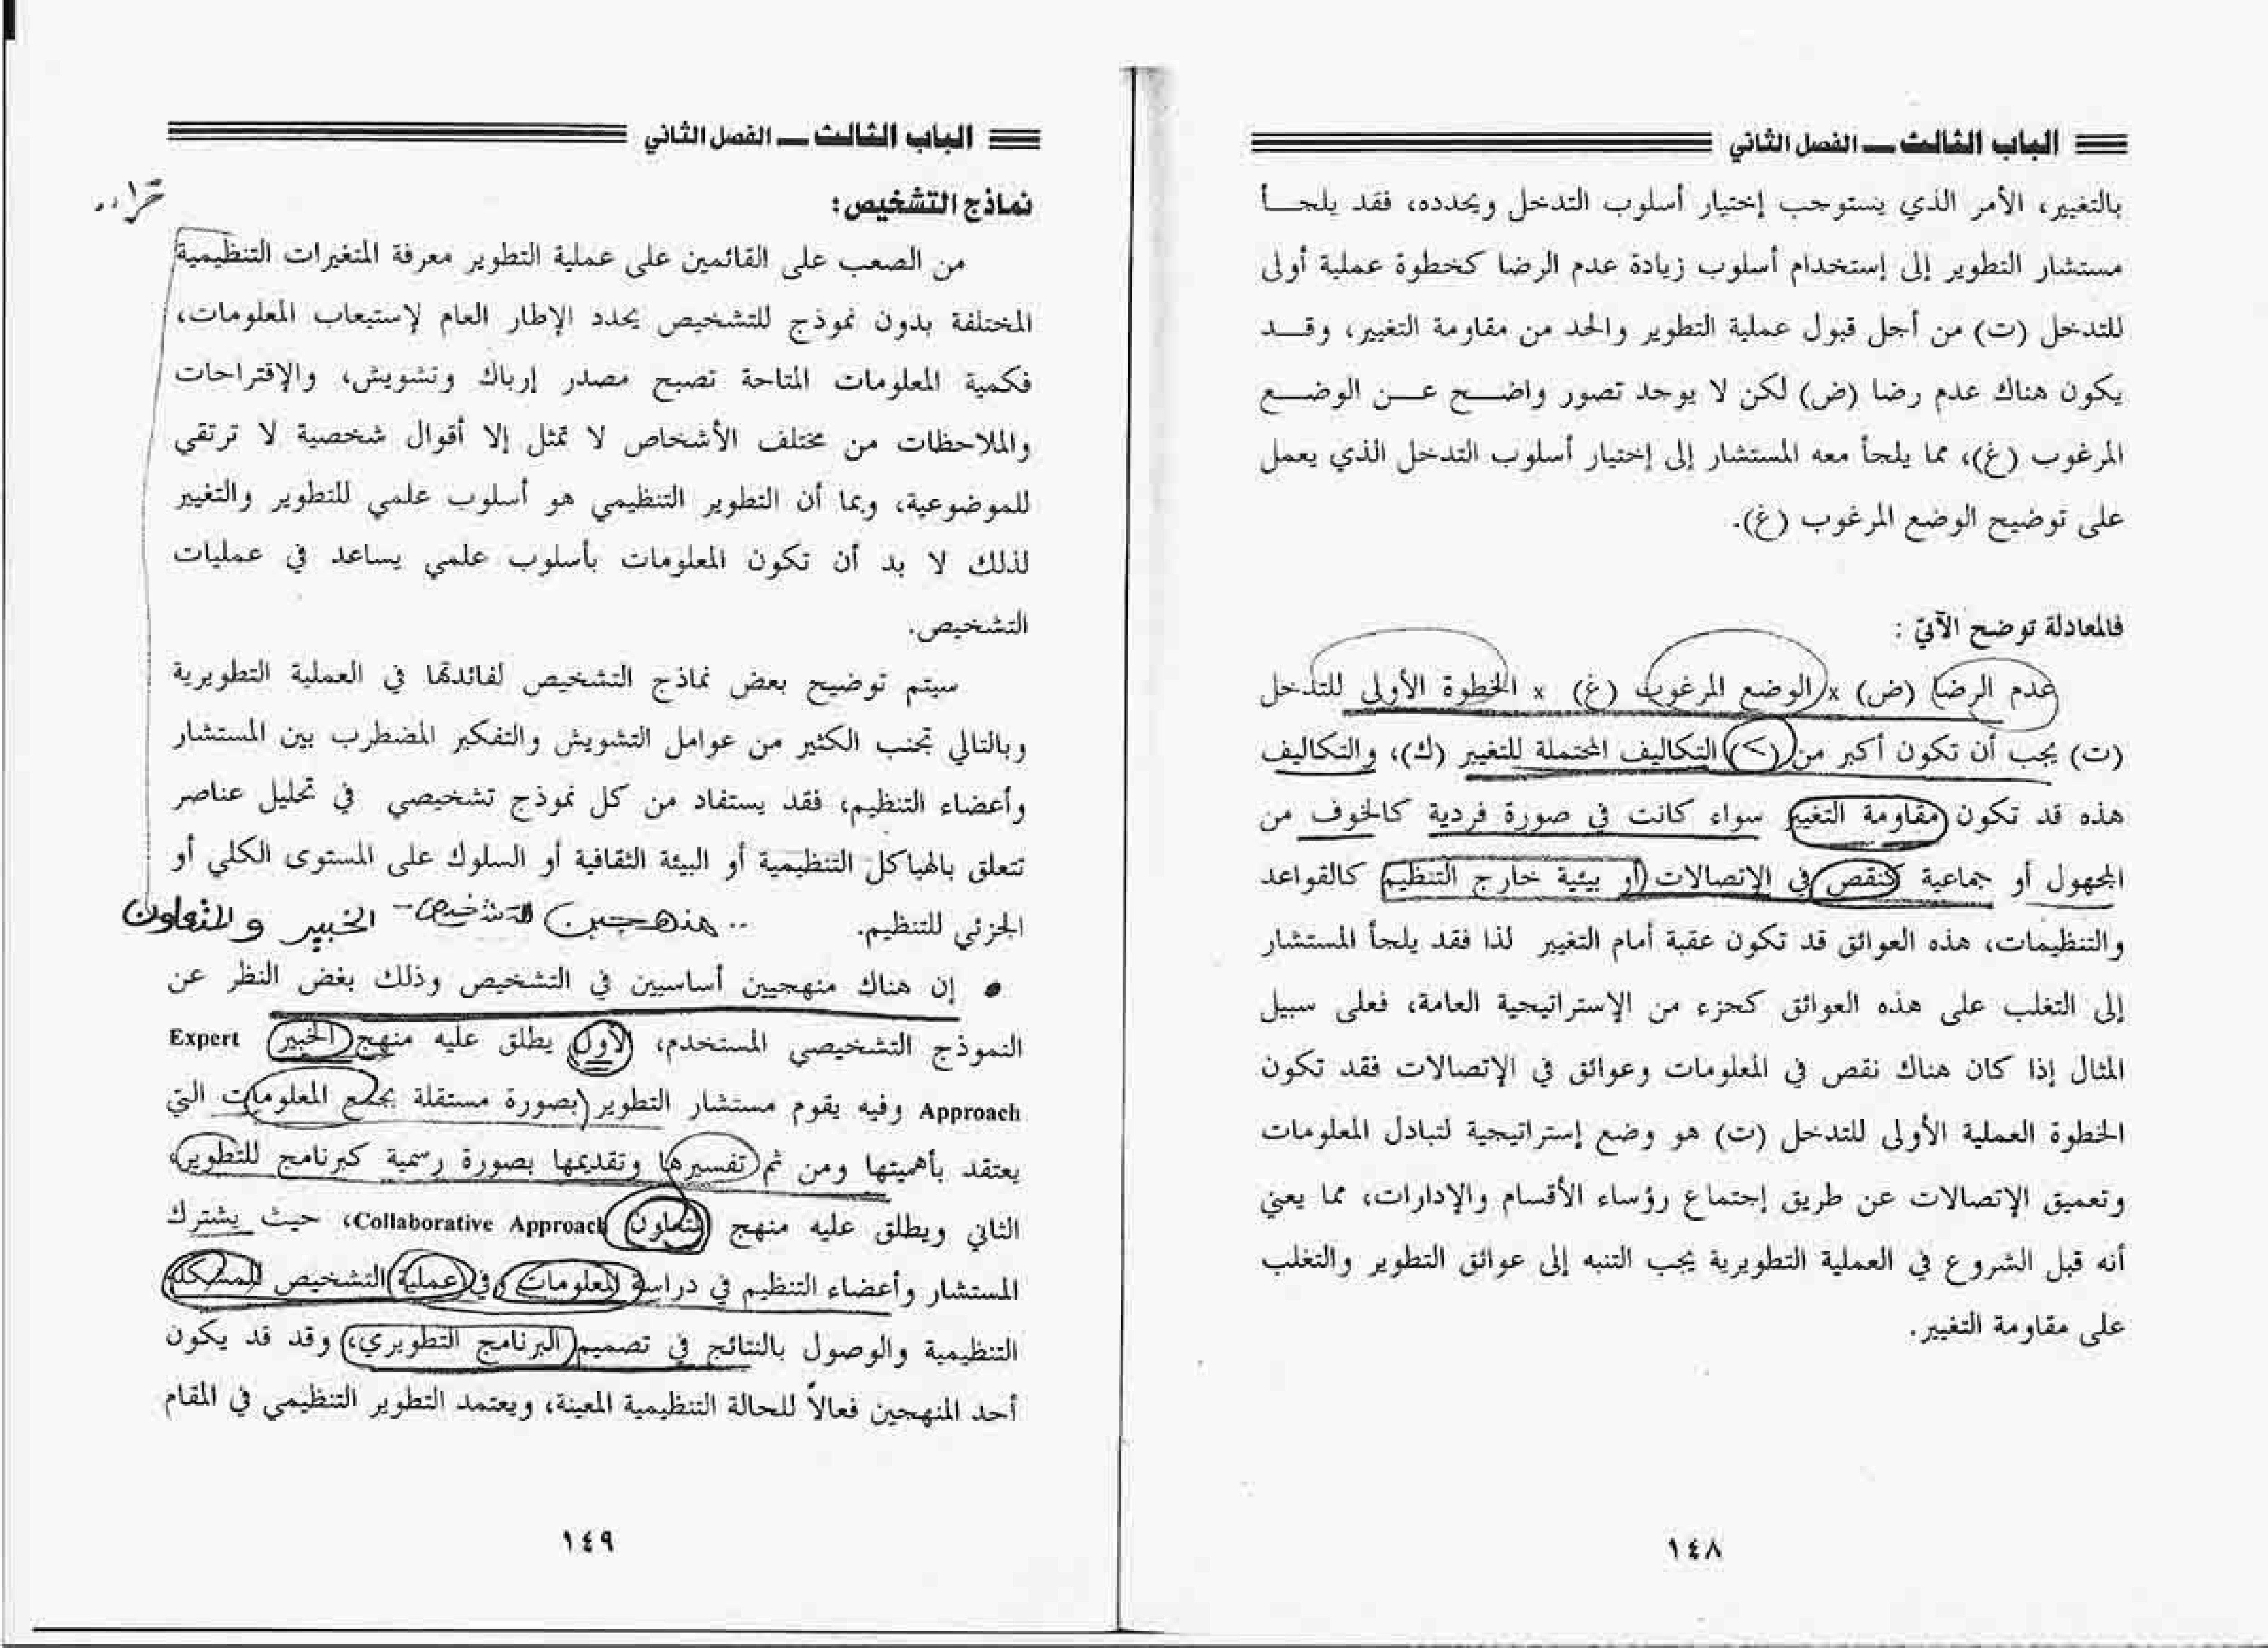 الباب الثالث ـــ الفصل الثاني
بالتغيير، الأمر الذي يستوجب إختيار أسلوب التدخل ويحدده، فقد يلجـــأ
مستشار التطوير إلى إستخدام أسلوب زيادة عدم الرضا كخطوة عملية أولى
للتدخل (ت) من أجل قبول عملية التطوير والحد من مقاومة التغيير، وقـــد
يكون هناك عدم رضا (ض) لكن لا يوجد تصور واضـــح عـــن الوضـــع
المرغوب (غ)، مما يلجأ معه المستشار إلى إختيار أسلوب التدخل الذي يعمل
على توضيح الوضع المرغوب (غ).
فالمعادلة توضح الآتي :
عدم الرضا (ض) x الوضع المرغوب (غ) x الخطوة الأولى للتدخل
(ت) يجب أن تكون أكبر من (>) التكاليف المحتملة للتغيير (ك)، والتكاليف
هذه قد تكون مقاومة التغيير سواء كانت في صورة فردية كالخوف من
المجهول أو جماعية كنقص في الإتصالات أو بيئية خارج التنظيم كالقواعد
والتنظيمات، هذه العوائق قد تكون عقبة أمام التغيير لذا فقد يلجأ المستشار
إلى التغلب على هذه العوائق كجزء من الإستراتيجية العامة، فعلى سبيل
المثال إذا كان هناك نقص في المعلومات وعوائق في الإتصالات فقد تكون
الخطوة العملية الأولى للتدخل (ت) هو وضع إستراتيجية لتبادل المعلومات
وتعميق الإتصالات عن طريق إجتماع رؤساء الأقسام والإدارات، مما يعني
أنه قبل الشروع في العملية التطويرية يجب التنبه إلى عوائق التطوير والتغلب
على مقاومة التغيير.
١٤٨
الباب الثالث ـــ الفصل الثاني
نماذج التشخيص:
من الصعب على القائمين على عملية التطوير معرفة المتغيرات التنظيمية
المختلفة بدون نموذج للتشخيص يحدد الإطار العام لإستيعاب المعلومات،
فكمية المعلومات المتاحة تصبح مصدر إرباك وتشويش، والإقتراحات
والملاحظات من مختلف الأشخاص لا تمثل إلا أقوال شخصية لا ترتقي
للموضوعية، وبما أن التطوير التنظيمي هو أسلوب علمي للتطوير والتغيير
لذلك لا بد أن تكون المعلومات بأسلوب علمي يساعد في عمليات
التشخيص.
سيتم توضيح بعض نماذج التشخيص لفائدتها في العملية التطويرية
وبالتالي تجنب الكثير من عوامل التشويش والتفكير المضطرب بين المستشار
وأعضاء التنظيم، فقد يستفاد من كل نموذج تشخيصي في تحليل عناصر
تتعلق بالهياكل التنظيمية أو البيئة الثقافية أو السلوك على المستوى الكلي أو
الجزئي للتنظيم. .. منهجين للتشخيص - الخبير والتعاون
• إن هناك منهجيين أساسيين في التشخيص وذلك بغض النظر عن
النموذج التشخيصي المستخدم، الأول يطلق عليه منهج الخبير Expert
Approach وفيه يقوم مستشار التطوير بصورة مستقلة بجمع المعلومات التي
يعتقد بأهميتها ومن ثم تفسيرها وتقديمها بصورة رسمية كبرنامج للتطوير،
الثاني ويطلق عليه منهج التعاون Collaborative Approach، حيث يشترك
المستشار وأعضاء التنظيم في دراسة المعلومات وفي عملية التشخيص للمشكلة
التنظيمية والوصول بالنتائج في تصميم البرنامج التطويري، وقد قد يكون
أحد المنهجين فعالاً للحالة التنظيمية المعينة، ويعتمد التطوير التنظيمي في المقام
١٤٩